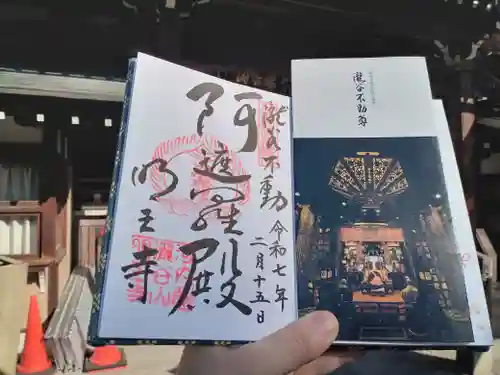 瀧谷不動
令和七年
二月十五日
阿遮羅殿
明王寺
瀧谷不動尊